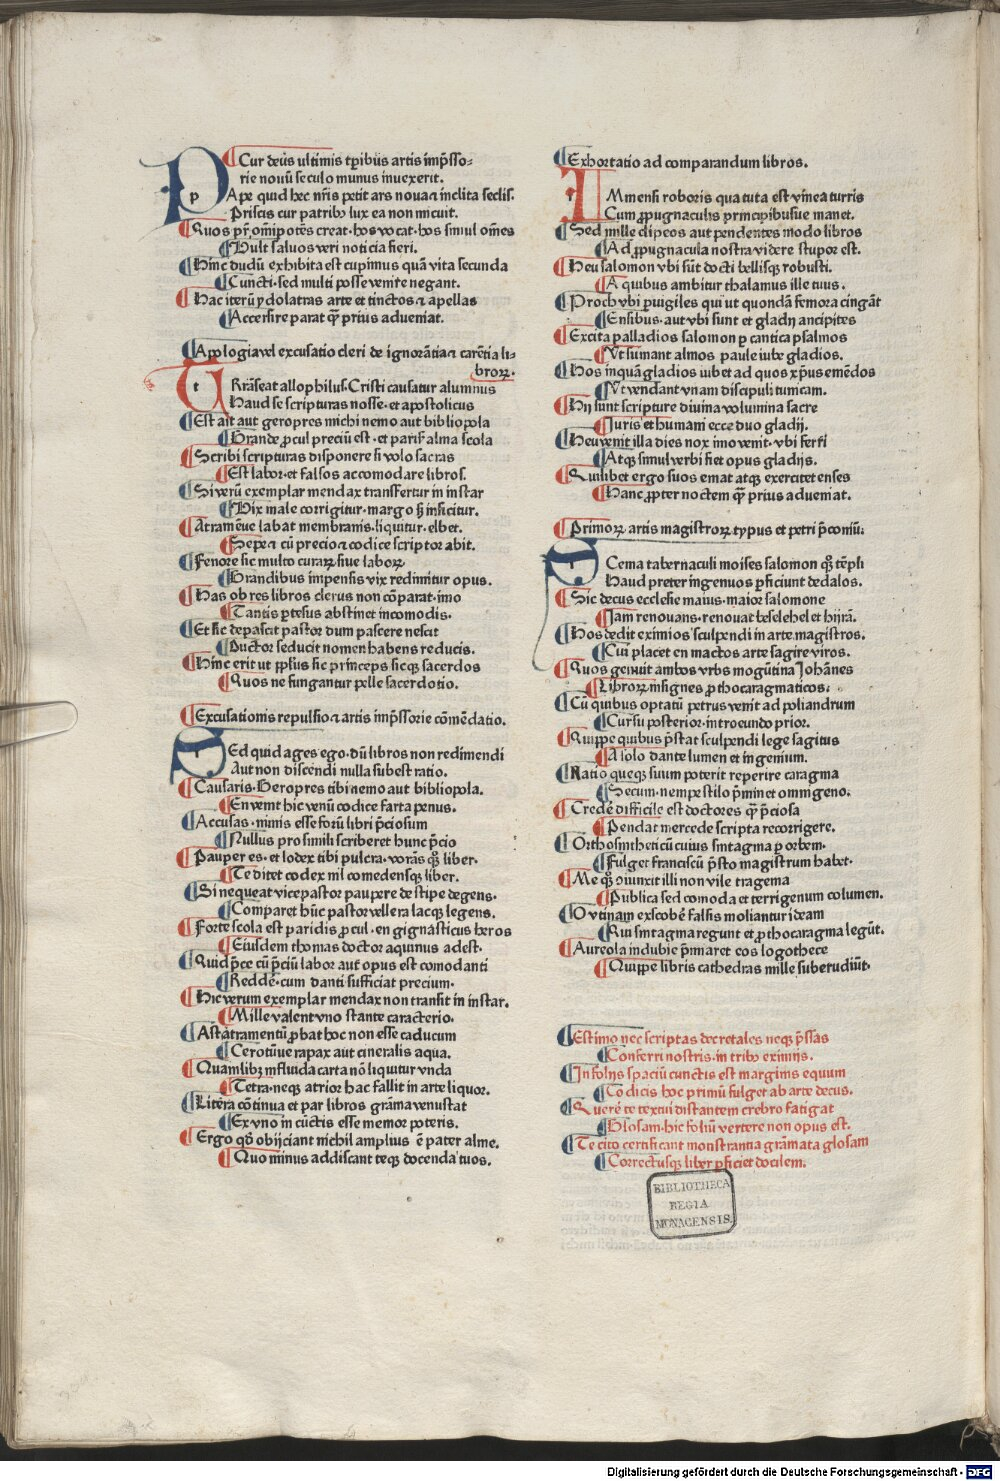 Cur deus ultimis tꝑibus artis imp̄sso⸗
rie nouū seculo munus inuexerit.
PApe quid hec nr̄is petit ars noua et inclita seclis.
Priscis cur patribꝰ lux ea non micuit.
Quos pr̄ omīpotēs creat. hos vocat. hos simul om̄es
Vult saluos veri noticia fieri.
Hinc dudū exhibita est cupimus quā vita secunda
Cuncti. sed multi posse venire negant.
Hac iterū ydolatras arte et tinctos et apellas
Accersire parat q̄ȝ prius adueniat.
Apologia vel excusatio cleri de ignorātia et carētia li⸗
broꝝ.
Vt
Rrāseat allophilus. Cristi causatur alumnus
Haud se scripturas nosse. et apostolicus
Est ait aut geropres michi nemo aut bibliopola
Grande ꝓcul preciū est. et parisꝰ alma scola
Scribi scripturas disponere si volo sacras
Est labor. et falsos accomodare libros.
Si verū exemplar mendax transfertur in instar
Vix male corrigitur. margo qȝ inficitur.
Atramēue labat membranis. liquitur. elbet.
Sepe et cū precio et codice scriptor abit.
Fenore sic multo curaꝝ siue laboꝝ
Grandibus impensis vix redimitur opus.
Has ob res libros clerus non cōparat. imo
Tantis ꝑtesus abstinet incomodis.
Et sic depascit pastor dum pascere nescit
Ductor seducit nomen habens reducis.
Hinc erit ut ꝓplus sic princeps sicqȝ sacerdos
Quos ne fungantur pelle sacerdotio.
Excusationis repulsio et artis imp̄ssorie cōmēdatio.
SEd quid ages ego. dū libros non redimendi
Aut non discendi nulla subest ratio.
Causaris. Geropres tibi nemo aut bibliopola.
En vemt hic venū codice farta penus.
Accusas. nimis esse forū libri p̄ciosum
Nullus pro simili scriberet hunc p̄cio
Pauper es. et lodex tibi pulcra. vorās qȝ liber.
Te ditet codex nil comedensqȝ liber.
Si nequeat vice pastor paupere de stipe degens.
Comparet hūc pastor vellera lacqȝ legens.
Forte scola est paridis ꝓcul. en gignasticus heros
Eiusdem thomas doctor aquinus adest.
Quid p̄ce cū p̄ciū labor aut opus est comodanti
Redde. cum danti sufficiat precium.
Hic verum exemplar mendax non transit in instar.
Mille valent vno stante caracterio.
Ast atramentū ꝓbat hoc non esse caducum
Cerotūue rapax aut cineralis aqua.
Quamlibȝ influida carta nō liquitur vnda
Tetra. neqȝ atrior hac fallit in arte liquor.
Litera cōtinua et par libros grāma venustat
Ex vno in cūctis esse memor poteris.
Ergo qd̄ obijciant nichil amplius ē pater alme.
Quo minus addiscant teqȝ docenda tuos.
Exhortatio ad comparandum libros.
IMmensi roboris qua tuta est vinea turris
Cum ꝓpugnaculis principibusue manet.
Sed mille clipeos aut pendentes modo libros
Ad ꝓpugnacula nostra videre stupor est.
Heu salomon vbi sūt docti bellisqȝ robusti.
A quibus ambitur thalamus ille tuus.
Proch vbi ꝑuigiles qui ut quondā femora cingāt
Ensibus. aut vbi sunt et gladij ancipites
Excita palladios salomon ꝑ cantica psalmos
Vt sumant almos paule iube gladios.
Hos inquā gladios iubet ad quos xp̄us emēdos
Vt vendant vnam discipuli tunicam.
Hij sunt scripture diuina volumina sacre
Juris et humani ecce duo gladij.
Heu venit illa dies nox imo venit. vbi ferri
Atqȝ simul verbi fiet opus gladijs.
Quilibet ergo suos emat atqȝ exercitet enses
Hanc ꝓpter noctem q̄ȝ prius adueniat.
Primoꝝ artis magistroꝝ typus et petri p̄coniū.
SCema tabernaculi moises salomon qȝ tēpli
Haud preter ingenuos ꝑficiunt dedalos.
Sic decus ecclesie maius. maior salomone
Jam renouans. renouat beselehel et hijrā.
Hos dedit eximios sculpendi in arte magistros.
Cui placet en mactos arte sagire viros.
Quos genuit ambos vrbs mogūtina Johānes
Libroꝝ insignes ꝓthocaragmaticos.
Cū quibus optatū petrus venit ad poliandrum
Cursu posterior. introeundo prior.
Quippe quibus p̄stat sculpendi lege sagitus
A solo dante lumen et ingenium.
Natio queqȝ suum poterit reperire caragma
Secum. nempe stilo p̄minet omnigeno.
Credē difficile est doctores q̄ȝ p̄ciosa
Pendat mercede scripta recorrigere.
Orthosintheticū cuius sintagma ꝑ orbem.
Fulget franciscū p̄sto magistrum habet.
Me qȝ ɔiunxit illi non vile tragema
Publica sed comoda et terrigenum columen.
O vtinam exscobē falsis moliantur ideam
Qui sintagma regunt et ꝓthocaragma legūt.
Aureola indubie p̄miaret eos logothece
Quippe libris cathedras mille suberudiūt.
Estimo nec scriptas decretales neqȝ p̄ssas
Conferri nostris. in tribꝰ eximijs.
In folijs spaciū cunctis est marginis equum
Codicis hoc primū fulget ab arte decus.
Querē te textui distantem crebro fatigat
Glosam. hic foliū vertere non opus est.
Te cito certificant monstrantia grāmata glosam
Correctusqȝ liber ꝑficiet docilem.
BIBLIOTHECA
REGIA
MONACENSIS.
Digitalisierung gefördert durch die Deutsche Forschungsgemeinschaft - DFG